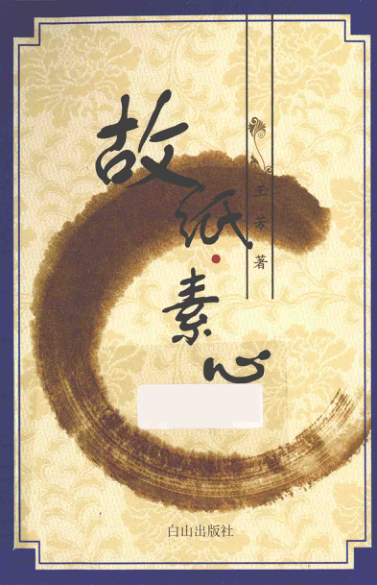 故纸·素心
王芳著
白山出版社